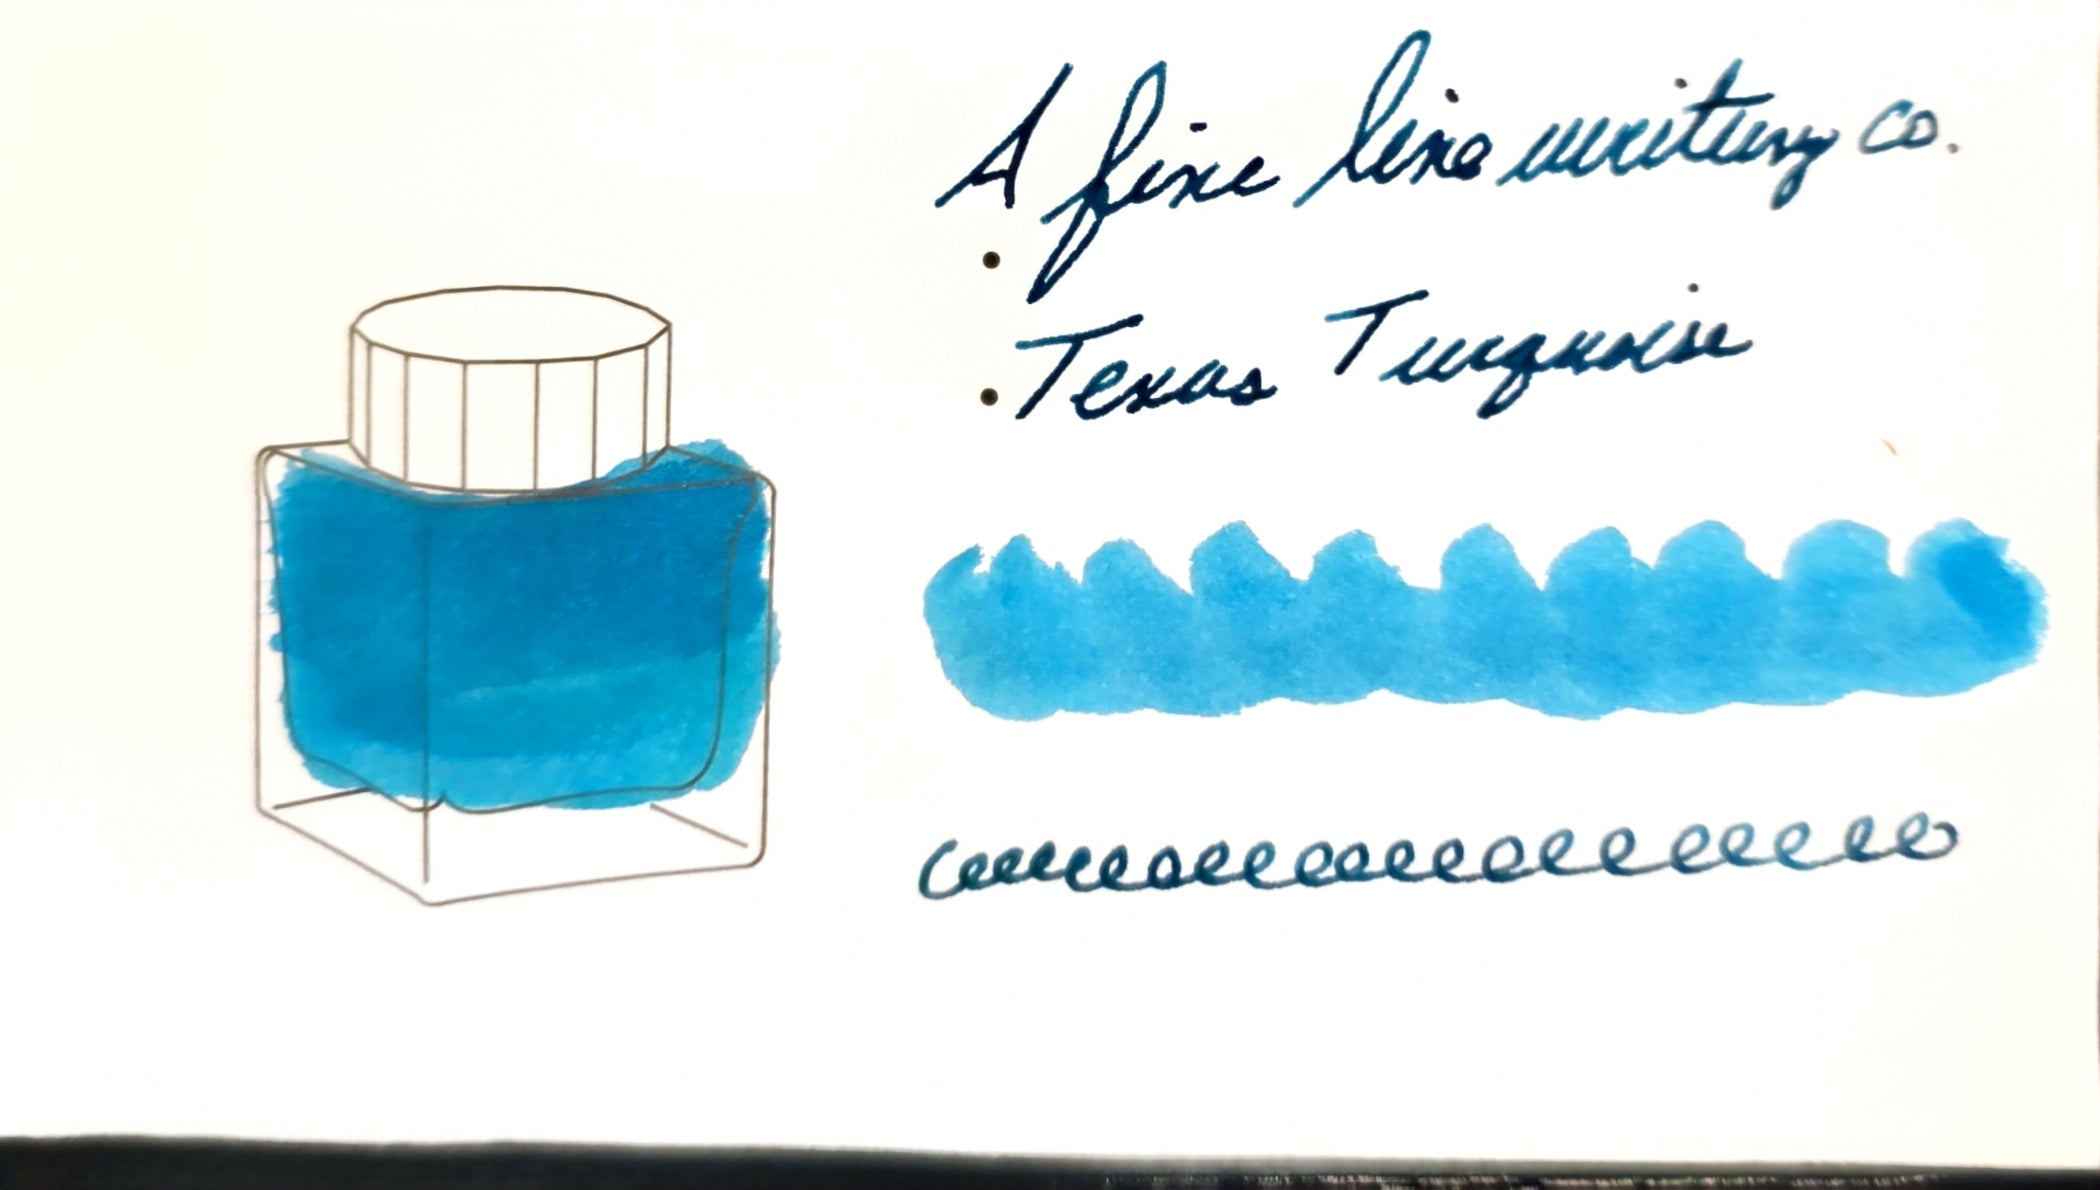 A fine line writing co.
Texas Turquoise